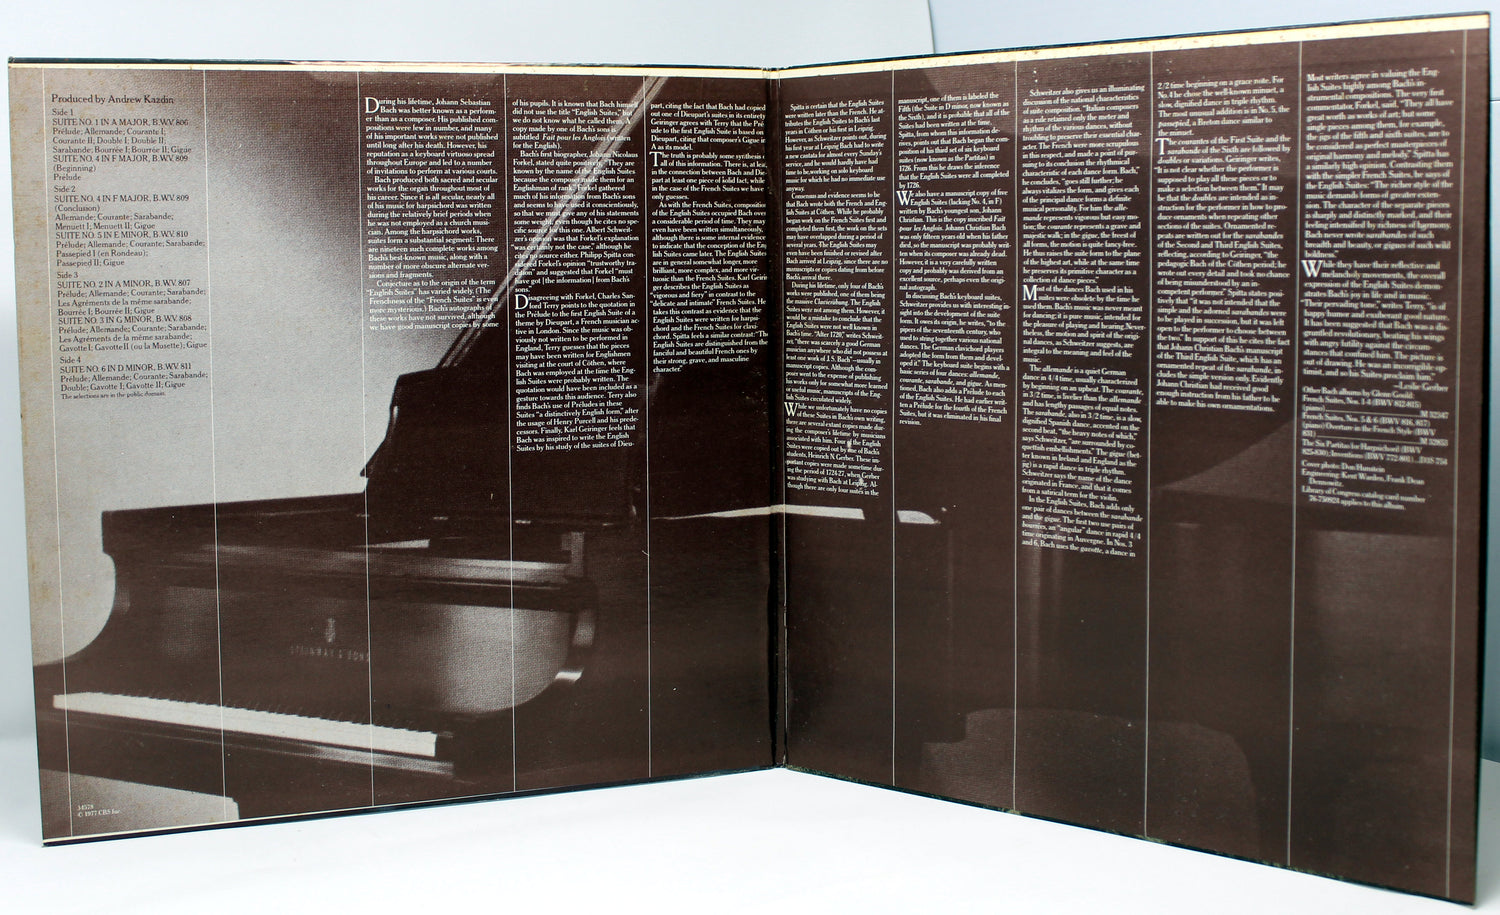 Produced by Andrew Kazdin
Side 1
SUITE NO. 1 IN A MAJOR, B.W.V. 806
Prélude; Allemande; Courante I;
Courante II; Double I; Double II;
Sarabande; Bourrée I; Bourrée II; Gigue
SUITE NO. 4 IN F MAJOR, B.W.V. 809
(Beginning)
Prélude
Side 2
SUITE NO. 4 IN F MAJOR, B.W.V. 809
(Conclusion)
Allemande; Courante; Sarabande;
Menuett I; Menuett II; Gigue
SUITE NO. 5 IN E MINOR, B.W.V. 810
Prélude; Allemande; Courante; Sarabande;
Passepied I (en Rondeau);
Passepied II; Gigue
Side 3
SUITE NO. 2 IN A MINOR, B.W.V. 807
Prélude; Allemande; Courante; Sarabande;
Les Agréments de la même sarabande;
Bourrée I; Bourrée II; Gigue
SUITE NO. 3 IN G MINOR, B.W.V. 808
Prélude; Allemande; Courante; Sarabande;
Les Agréments de la même sarabande;
Gavotte I; Gavotte II (ou la Musette); Gigue
Side 4
SUITE NO. 6 IN D MINOR, B.W.V. 811
Prélude; Allemande; Courante; Sarabande;
Double; Gavotte I; Gavotte II; Gigue
The selections are in the public domain.
34578
© 1977 CBS Inc.
STEINWAY & SONS
During his lifetime, Johann Sebastian
Bach was better known as a perform-
er than as a composer. His published com-
positions were few in number, and many
of his important works were not published
until long after his death. However, his
reputation as a keyboard virtuoso spread
throughout Europe and led to a number
of invitations to perform at various courts.
Bach produced both sacred and secular
works for the organ throughout most of
his career. Since it is all secular, nearly all
of his music for harpsichord was written
during the relatively brief periods when
he was not employed as a church musi-
cian. Among the harpsichord works,
suites form a substantial segment: There
are nineteen such complete works among
Bach's best-known music, along with a
number of more obscure alternate ver-
sions and fragments.
Conjecture as to the origin of the term
"English Suites" has varied widely. (The
Frenchness of the "French Suites" is even
more mysterious.) Bach's autographs of
these works have not survived, although
we have good manuscript copies by some
of his pupils. It is known that Bach himself
did not use the title "English Suites," but
we do not know what he called them. A
copy made by one of Bach's sons is
subtitled Fait pour les Anglois (written
for the English).
Bach's first biographer, Johann Nicolaus
Forkel, stated quite positively, "They are
known by the name of the English Suites
because the composer made them for an
Englishman of rank." Forkel gathered
much of his information from Bach's sons
and seems to have used it conscientiously,
so that we must give any of his statements
some weight, even though he cites no spe-
cific source for this one. Albert Schweit-
zer's opinion was that Forkel's explanation
"was certainly not the case," although he
cites no source either. Philipp Spitta con-
sidered Forkel's opinion "trustworthy tra-
dition" and suggested that Forkel "must
have got [the information] from Bach's
sons."
Disagreeing with Forkel, Charles San-
ford Terry points to the quotation in
the Prélude to the first English Suite of a
theme by Dieupart, a French musician ac-
tive in London. Since the music was ob-
viously not written to be performed in
England, Terry guesses that the pieces
may have been written for Englishmen
visiting at the court of Cöthen, where
Bach was employed at the time the Eng-
lish Suites were probably written. The
quotation would have been included as a
gesture towards this audience. Terry also
finds Bach's use of Préludes in these
Suites "a distinctively English form," after
the usage of Henry Purcell and his prede-
cessors. Finally, Karl Geiringer feels that
Bach was inspired to write the English
Suites by his study of the suites of Dieu-
part, citing the fact that Bach had copied
out one of Dieupart's suites in its entirety
Geiringer agrees with Terry that the Pré
ude to the first English Suite is based on
Dieupart, citing that composer's Gigue in
A as its model.
The truth is probably some synthesis
all of this information. There is, at lea
in the connection between Bach and Die
part at least one piece of solid fact, while
in the case of the French Suites we have
only guesses.
As with the French Suites, composition
of the English Suites occupied Bach over
a considerable period of time. They may
even have been written simultaneously,
although there is some internal evidence
to indicate that the conception of the Eng
lish Suites came later. The English Suites
are in general somewhat longer, more
brilliant, more complex, and more vir-
tuosic than the French Suites. Karl Geirin
ger describes the English Suites as
"vigorous and fiery" in contrast to the
"delicate and intimate" French Suites. He
takes this contrast as evidence that the
English Suites were written for harpsi-
chord and the French Suites for clavi-
chord. Spitta feels a similar contrast: "Th
English Suites are distinguished from the
fanciful and beautiful French ones by
their strong, grave, and masculine
character."
Spitta is certain that the English Suites
were written later than the French. He at-
tributes the English Suites to Bach's last
years in Cöthen or his first in Leipzig.
However, as Schweitzer points out, during
his first year at Leipzig Bach had to write
a new cantata for almost every Sunday's
service, and he would hardly have had
time to be working on solo keyboard
music for which he had no immediate use
anyway.
Consensus and evidence seems to be
that Bach wrote both the French and Eng-
lish Suites at Cöthen. While he probably
began work on the French Suites first and
completed them first, the work on the sets
may have overlapped during a period of
several years. The English Suites may
even have been finished or revised after
Bach arrived at Leipzig, since there are no
manuscripts or copies dating from before
Bach's arrival there.
During his lifetime, only four of Bach's
works were published, one of them being
the massive Clavierübung. The English
Suites were not among them. However, it
would be a mistake to conclude that the
English Suites were not well known in
Bach's time. "After 1720," writes Schweit-
zer, "there was scarcely a good German
musician anywhere who did not possess at
least one work of J.S. Bach"—usually in
manuscript copies. Although the com-
poser went to the expense of publishing
his works only for somewhat more learned
or useful works, manuscripts of the Eng-
lish Suites circulated widely.
While we unfortunately have no copies
of these Suites in Bach's own writing,
there are several extant copies made dur-
ing the composer's lifetime by musicians
associated with him. Four of the English
Suites were copied out by one of Bach's
students, Heinrich N. Gerber. These im-
portant copies were made sometime dur-
ing the period of 1724-27, when Gerber
was studying with Bach at Leipzig. Al-
though there are only four suites in the
manuscript, one of them is labeled the
Fifth (the Suite in D minor, now known as
the Sixth), and it is probable that all of the
Suites had been written at the time.
Spitta, from whom this information de-
rives, points out that Bach began the com-
position of his third set of six keyboard
suites (now known as the Partitas) in
1726. From this he draws the inference
that the English Suites were all completed
by 1726.
We also have a manuscript copy of five
English Suites (lacking No. 4, in F)
written by Bach's youngest son, Johann
Christian. This is the copy inscribed Fait
pour les Anglois. Johann Christian Bach
was only fifteen years old when his father
died, so the manuscript was probably writ-
ten when its composer was already dead.
However, it is a very carefully written
copy and probably was derived from an
excellent source, perhaps even the origi-
nal autograph.
In discussing Bach's keyboard suites,
Schweitzer provides us with interesting in-
sight into the development of the suite
form. It owes its origin, he writes, "to the
pipers of the seventeenth century, who
used to string together various national
dances. The German clavichord players
adopted the form from them and devel-
oped it." The keyboard suite begins with a
basic series of four dances: allemande,
courante, sarabande, and gigue. As men-
tioned, Bach also adds a Prélude to each
of the English Suites. He had earlier writ-
ten a Prélude for the fourth of the French
Suites, but it was eliminated in his final
revision.
Schweitzer also gives us an illuminating
discussion of the national characteristics
of suite composition. "Italian composers
as a rule retained only the meter and
rhythm of the various dances, without
troubling to preserve their essential char-
acter. The French were more scrupulous
in this respect, and made a point of pur-
suing to its conclusion the rhythmical
characteristic of each dance form. Bach,"
he concludes, "goes still further; he
always vitalizes the form, and gives each
of the principal dance forms a definite
musical personality. For him the alle-
mande represents vigorous but easy mo-
tion; the courante represents a grave and
majestic walk; in the gigue, the freest of
all forms, the motion is quite fancy-free.
He thus raises the suite form to the plane
of the highest art, while at the same time
he preserves its primitive character as a
collection of dance pieces."
Most of the dances Bach used in his
suites were obsolete by the time he
used them. Bach's music was never meant
for dancing; it is pure music, intended for
the pleasure of playing and hearing. Never-
theless, the motion and spirit of the origi-
nal dances, as Schweitzer suggests, are
integral to the meaning and feel of the
music.
The allemande is a quiet German
dance in 4/4 time, usually characterized
by beginning on an upbeat. The courante,
in 3/2 time, is livelier than the allemande
and has lengthy passages of equal notes.
The sarabande, also in 3/2 time, is a slow,
dignified Spanish dance, accented on the
second beat, "the heavy notes of which,"
says Schweitzer, "are surrounded by co-
quettish embellishments." The gigue (bet-
ter known in Ireland and England as the
jig) is a rapid dance in triple rhythm.
Schweitzer says the name of the dance
originated in France, and that it comes
from a satirical term for the violin.
In the English Suites, Bach adds only
one pair of dances between the sarabande
and the gigue. The first two use pairs of
bourrées, an "angular" dance in rapid 4/4
time originating in Auvergne. In Nos. 3
and 6, Bach uses the gavotte, a dance in
2/2 time beginning on a grace note. For
No. 4 he chose the well-known minuet, a
slow, dignified dance in triple rhythm.
The most unusual addition is in No. 5, the
passepied, a Breton dance similar to
the minuet.
The courantes of the First Suite and the
sarabande of the Sixth are followed by
doubles or variations. Geiringer writes,
"It is not clear whether the performer is
supposed to play all these pieces or to
make a selection between them." It may
be that the doubles are intended as in-
struction for the performer in how to pro-
duce ornaments when repeating other
sections of the suites. Ornamented re-
peats are written out for the sarabandes
of the Second and Third English Suites,
reflecting, according to Geiringer, "the
pedagogic Bach of the Cöthen period; he
wrote out every detail and took no chance
of being misunderstood by an in-
competent performer." Spitta states posi-
tively that "it was not intended that the
simple and the adorned sarabandes were
to be played in succession, but it was left
open to the performer to choose between
the two." In support of this he cites the fact
that Johann Christian Bach's manuscript
of the Third English Suite, which has an
ornamented repeat of the sarabande, in-
cludes the simple version only. Evidently
Johann Christian had received good
enough instruction from his father to be
able to make his own ornamentations.
Most writers agree in valuing the Eng-
lish Suites highly among Bach's in-
strumental compositions. The very first
commentator, Forkel, said, "They all have
great worth as works of art; but some
single pieces among them, for example,
the jigs of the fifth and sixth suites, are to
be considered as perfect masterpieces of
original harmony and melody." Spitta has
a similarly high opinion. Contrasting them
with the simpler French Suites, he says of
the English Suites: "The richer style of the
music demands forms of greater exten-
sion. The character of the separate pieces
is sharply and distinctly marked, and their
feeling intensified by richness of harmony.
Bach never wrote sarabandes of such
breadth and beauty, or gigues of such wild
boldness."
While they have their reflective and
melancholy movements, the overall
expression of the English Suites demon-
strates Bach's joy in life and in music.
Their pervading tone," writes Terry, "is of
happy humor and exuberant good nature.
It has been suggested that Bach was a dis-
gruntled revolutionary, beating his wings
with angry futility against the circum-
stances that confined him. The picture is
out of drawing. He was an incorrigible op-
timist, and so his Suites proclaim him."
—Leslie Gerber
Other Bach albums by Glenn Gould:
French Suites, Nos. 1-4 (BWV 812-815)
(piano) M 32347
French Suites, Nos. 5 & 6 (BWV 816, 817)
(piano) Overture in the French Style (BWV
831) M 32853
The Six Partitas for Harpsichord (BWV
825-830); Inventions (BWV 772-801) D3S 754
Cover photo: Don Hunstein
Engineering: Kent Warden, Frank Dean
Dennowitz.
Library of Congress catalog card number
76-750924 applies to this album.